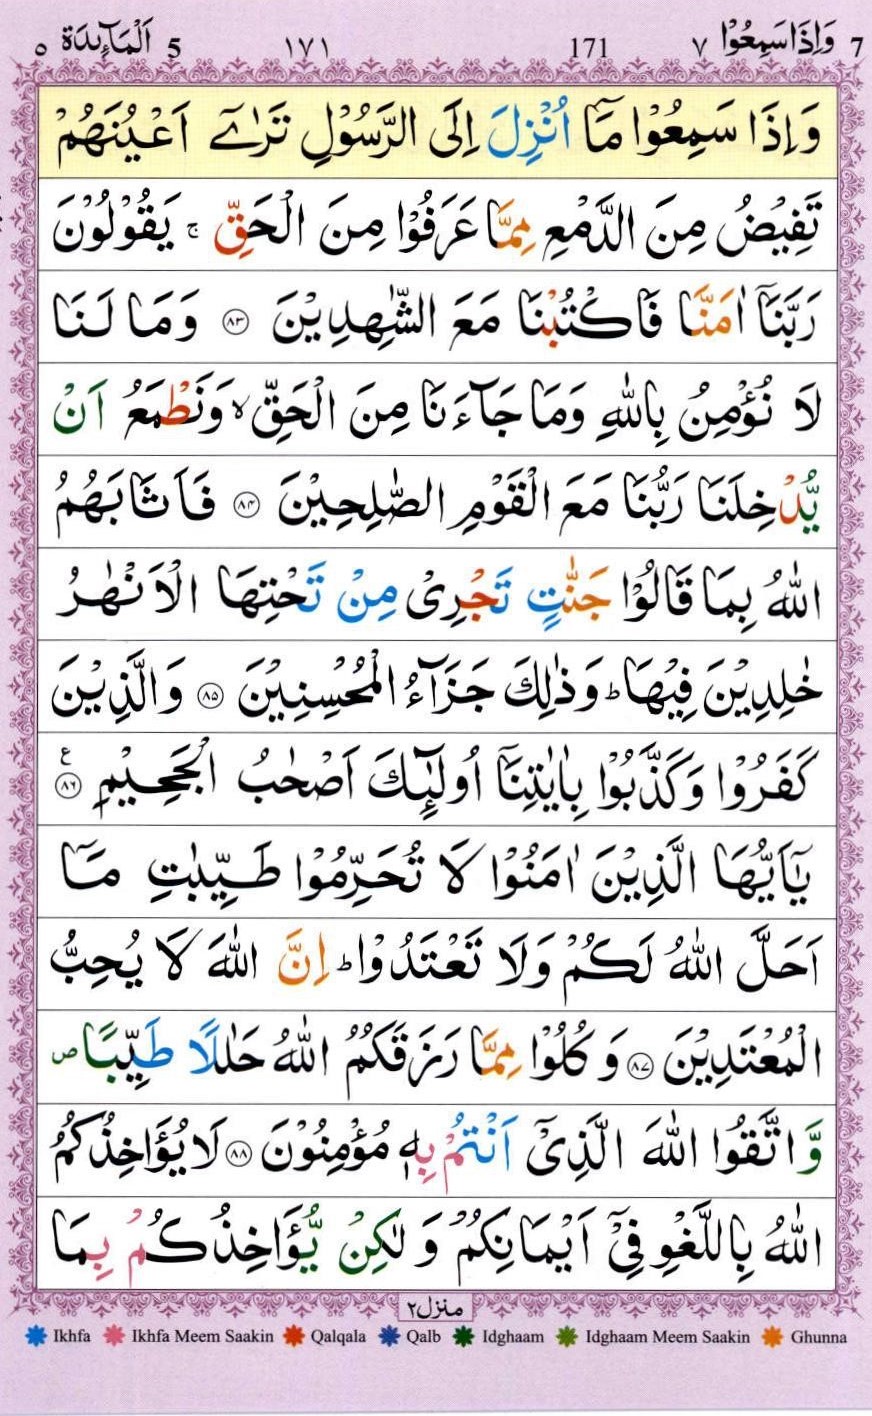 7 وَاِذَا سَمِعُوْا ٧ 171 ١٧١ 5 اَلْمَآئِدَة ٥
وَاِذَا سَمِعُوْا مَاۤ اُنْزِلَ اِلَى الرَّسُوْلِ تَرٰۤى اَعْيُنَهُمْ
تَفِيْضُ مِنَ الدَّمْعِ مِمَّا عَرَفُوْا مِنَ الْحَقِّ ۚ يَقُوْلُوْنَ
رَبَّنَاۤ اٰمَنَّا فَاكْتُبْنَا مَعَ الشّٰهِدِيْنَ ﴿۸۳﴾ وَمَا لَنَا
لَا نُؤْمِنُ بِاللّٰهِ وَمَا جَآءَنَا مِنَ الْحَقِّ ۙ وَنَطْمَعُ اَنْ
يُّدْخِلَنَا رَبُّنَا مَعَ الْقَوْمِ الصّٰلِحِيْنَ ﴿۸۴﴾ فَاَثَابَهُمُ
اللّٰهُ بِمَا قَالُوْا جَنّٰتٍ تَجْرِىْ مِنْ تَحْتِهَا الْاَنْهٰرُ
خٰلِدِيْنَ فِيْهَا ؕ وَذٰلِكَ جَزَآءُ الْمُحْسِنِيْنَ ﴿۸۵﴾ وَالَّذِيْنَ
كَفَرُوْا وَكَذَّبُوْا بِاٰيٰتِنَاۤ اُولٰٓئِكَ اَصْحٰبُ الْجَحِيْمِ ﴿۸۶﴾ ع
يٰۤاَيُّهَا الَّذِيْنَ اٰمَنُوْا لَا تُحَرِّمُوْا طَيِّبٰتِ مَاۤ
اَحَلَّ اللّٰهُ لَكُمْ وَلَا تَعْتَدُوْا ؕ اِنَّ اللّٰهَ لَا يُحِبُّ
الْمُعْتَدِيْنَ ﴿۸۷﴾ وَكُلُوْا مِمَّا رَزَقَكُمُ اللّٰهُ حَلٰلًا طَيِّبًا ص
وَّاتَّقُوا اللّٰهَ الَّذِىْۤ اَنْتُمْ بِهٖ مُؤْمِنُوْنَ ﴿۸۸﴾ لَا يُؤَاخِذُكُمُ
اللّٰهُ بِاللَّغْوِ فِىْۤ اَيْمَانِكُمْ وَلٰكِنْ يُّؤَاخِذُكُمْ بِمَا
منزل ٢
Ikhfa Ikhfa Meem Saakin Qalqala Qalb Idghaam Idghaam Meem Saakin Ghunna